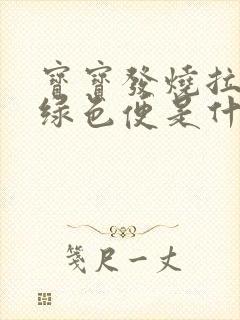 寶寶發燒拉
綠色便是什
箋尺一丈